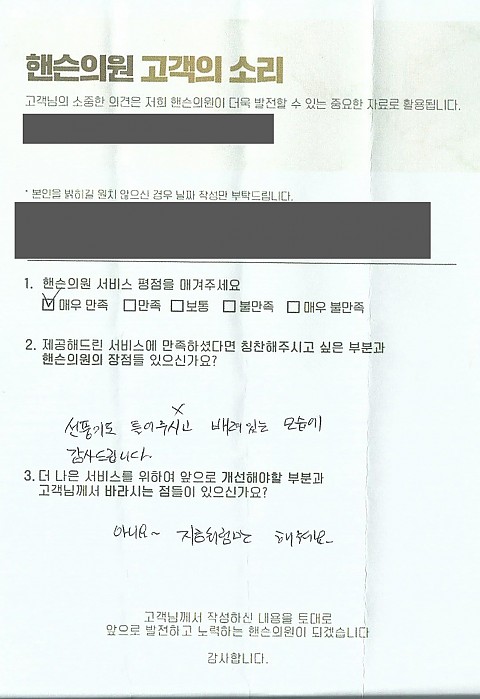 핸슨의원 고객의 소리
고객님의 소중한 의견은 저희 핸슨의원이 더욱 발전할 수 있는 중요한 자료로 활용됩니다.
* 본인을 밝히길 원치 않으신 경우 날짜 작성만 부탁드립니다.
1. 핸슨의원 서비스 평점을 매겨주세요
☑ 매우 만족 □만족 □보통 □불만족 □ 매우 불만족
2. 제공해드린 서비스에 만족하셨다면 칭찬해주시고 싶은 부분과
핸슨의원의 장점들 있으신가요?
선풍기도 틀어주시고 배려있는 모습에
감사드립니다.
3. 더 나은 서비스를 위하여 앞으로 개선해야할 부분과
고객님께서 바라시는 점들이 있으신가요?
아니요~ 지금처럼만 해주세요~
고객님께서 작성하신 내용을 토대로
앞으로 발전하고 노력하는 핸슨의원이 되겠습니다
감사합니다.